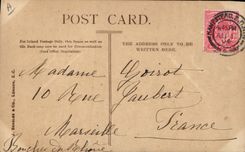 POST CARD.
For Inland Postage only, this Space as well as
the Back may now be used for Communication
(Post Office Regulation)
THE ADDRESS ONLY TO BE
WRITTEN HERE.
Madame Goirot
10 Rue Jaubert
Marseille
France
Bouches du Rhône